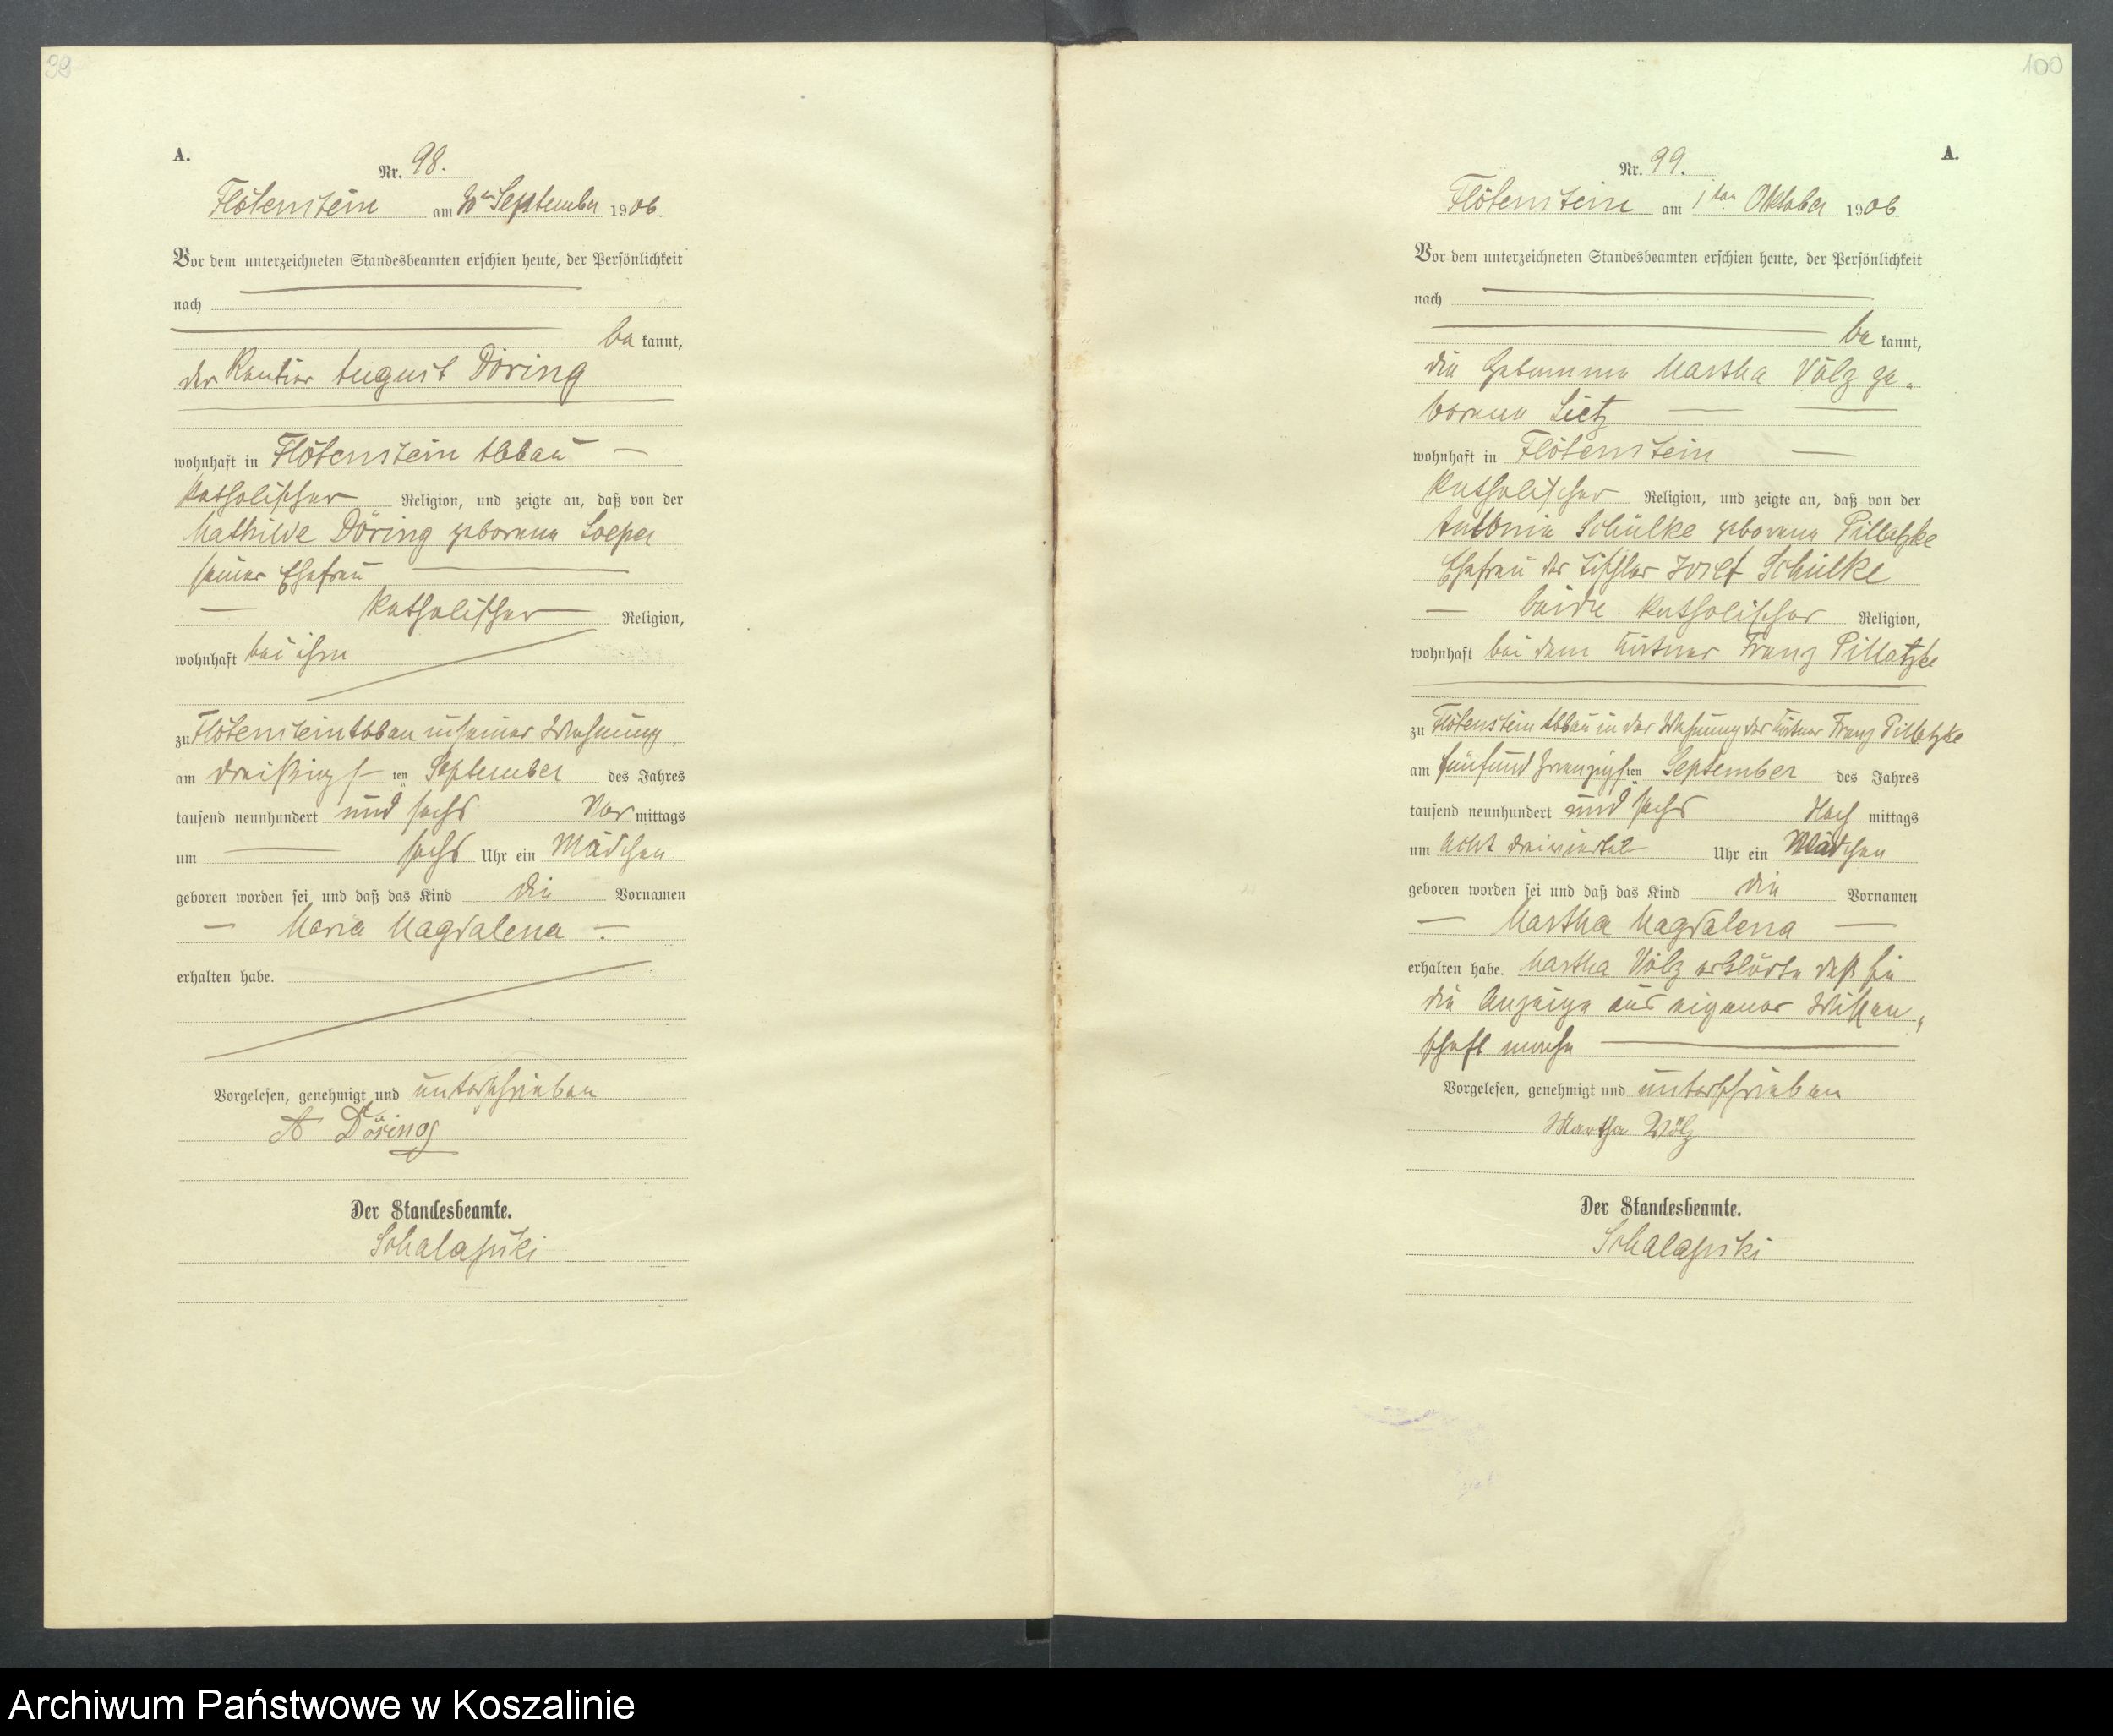 99
A.
Nr. 98.
Flötenstein am 30ten September 1906
Vor dem unterzeichneten Standesbeamten erschien heute, der Persönlichkeit
nach
be kannt,
der Rentier August Döring
wohnhaft in Flötenstein Abbau
katholischer Religion, und zeigte an, daß von der
Mathilde Döring geborene Loeper
seiner Ehefrau
katholischer Religion,
wohnhaft bei ihm
zu Flötenstein Abbau in seiner Wohnung
am dreißigs ten September des Jahres
tausend neunhundert und sechs Vor mittags
um sechs Uhr ein Mädchen
geboren worden sei und daß das Kind die Vornamen
Maria Magdalena
erhalten habe.
Vorgelesen, genehmigt und unterschrieben
A Döring
Der Standesbeamte.
100
A.
Nr. 99.
Flötenstein am 1ten Oktober 1906
Vor dem unterzeichneten Standesbeamten erschien heute, der Persönlichkeit
nach
be kannt,
die Hebamme Martha Völz ge„
borene Lietz
wohnhaft in Flötenstein
katholischer Religion, und zeigte an, daß von der
Antonie Schülke geborene Pillatzke
Ehefrau des Tischler Josef Schülke
beide katholischer Religion,
wohnhaft bei dem Franz Pillatzke
zu Flötenstein Abbau in der Wohnung des Franz Pillatzke
am fünfund zwanzigs ten September des Jahres
tausend neunhundert und sechs Nach mittags
um acht dreiviertel Uhr ein Mädchen
geboren worden sei und daß das Kind die Vornamen
Martha Magdalena
erhalten habe. Martha Völz erklärte daß sie
die Anzeige aus eigener Wissen„
schaft mache
Vorgelesen, genehmigt und unterschrieben
Martha Völz
Der Standesbeamte.
Archiwum Państwowe w Koszalinie